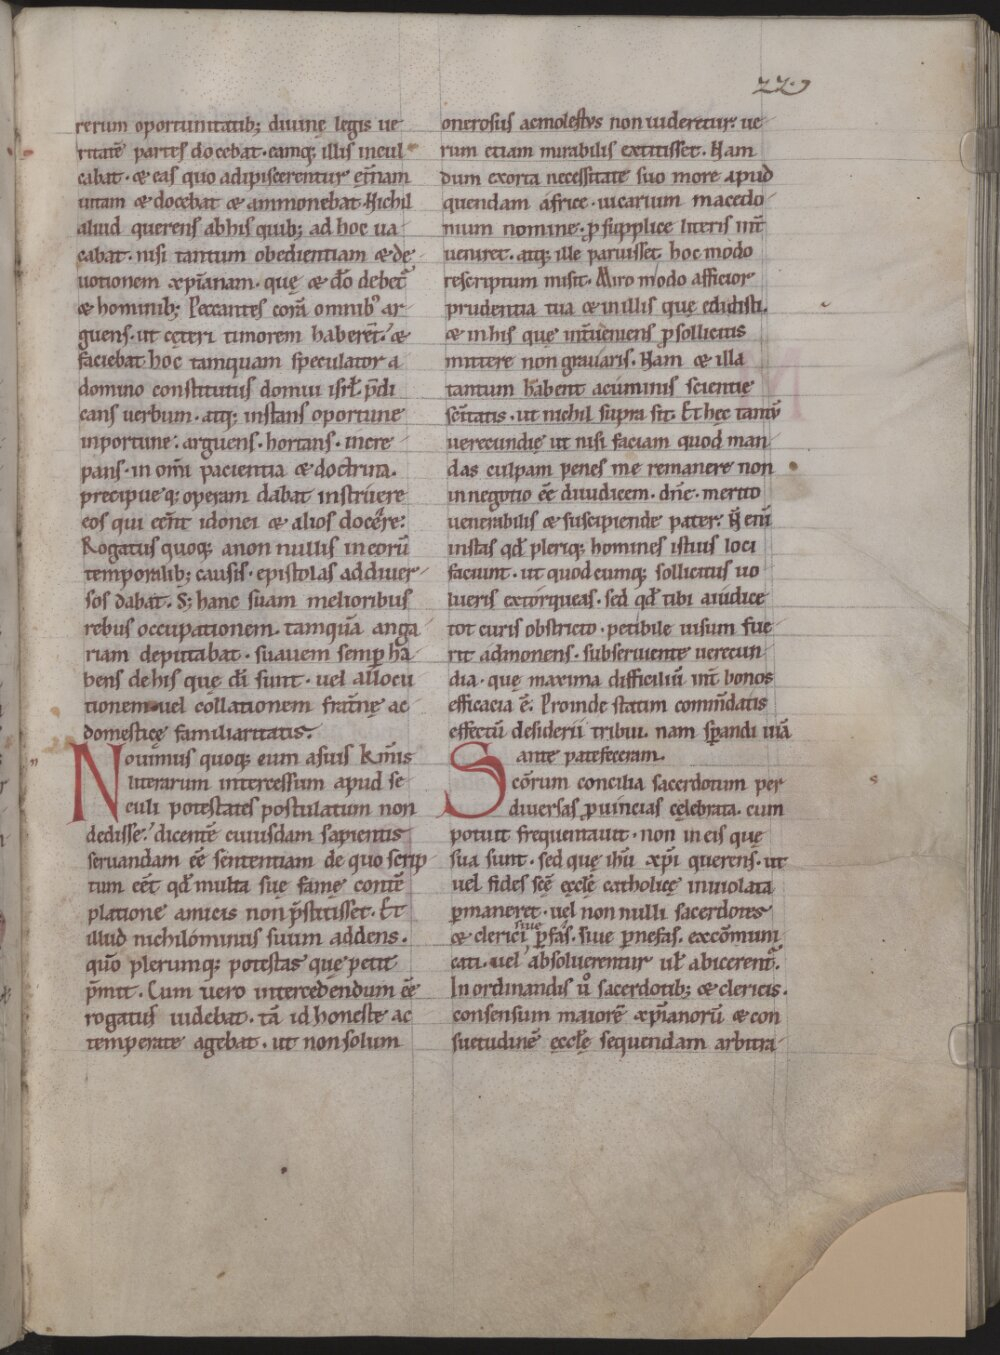 229
rerum oportunitatib; diuinę legis ue
ritatē partes docebat. eamq; illis incul
cabat. & eas quo adipiscerentur et̄nam
uitam & docebat & ammonebat. Nichil
aliud querens ab his quib; ad hoc ua
cabat. nisi tantum obedientiam & de
uotionem xp̄ianam. quę & dō debet̄
& hominib; Peccantes corā omnib; ar
guens. ut cęteri timorem haberēt. &
faciebat hoc tamquam speculator a
domino constitutus domui isrł. p̄di
cans uerbum. atq; instans oportune
inportune. arguens. hortans. incre
pans. in om̄i pacientia & doctrina.
precipueq; operam dabat instruere
eos qui eēnt idonei & alios docere:
Rogatus quoq; a nonnullis in eorū
temporalib; causis. epistolas ad diuer
sos dabat. S; hanc suam melioribus
rebus occupationem. tamquā anga
riam deputabat. suauem semꝑ ha
bens de his quę dī sunt. uel allocu
tionem uel collationem frat̄nę ac
domesticę familiaritatis.
Nouimus quoq; eum a suis km̄is
literarum intercessum apud se
culi potestates postulatum non
dedisse. dicentē cuiusdam sapientis
seruandam eē sententiam de quo scrip
tum eēt qđ multa suę famę contē
platione amicis non p̄stitisset. Et
illud nichilominus suum addens.
quō plerumq; potestas quę petit
p̄mit. Cum uero intercedendum eē
rogatus uidebat. tā id honeste ac
temperate agebat. ut non solum
onerosus ac molestus non uideretur. ue
rum etiam mirabilis extitisset. Nam
dum exorta necessitate suo more apud
quendam africe. uicarium macedo
nium nomine. ꝓ supplice literis int̄
ueniret. atq; ille paruisset hoc modo
rescriptum misit. Miro modo afficior
prudentia tua & in illis quę edidisti.
& in his quę int̄ueniens ꝓ sollicitis
mittere non grauaris. Nam & illa
tantum habent acuminis scientię
sc̄itatis. ut nichil supra sit. Et hęc tantū
uerecundię ut nisi faciam quod man
das culpam penes me remanere non
in negotio eē diiudicem. dn̄e. merito
uenerabilis & suscipiende pater. N̄ enī
instas qđ pleriq; homines istius loci
faciunt. ut quodcumq; sollicitus uo
lueris extorqueas. sed qđ tibi a iudice
tot curis obstricto. petibile uisum fue
rit admonens. subseruiente uerecun
dia. quę maxima difficiliū int̄ bonos
efficacia ē. Proinde statim com̄datis
effectū desiderii tribui. nam sꝑandi uiā
ante patefeceram.
Scōrum concilia sacerdotum per
diuersas ꝓuincias cęlebrata. cum
potuit frequentauit. non in eis quę
sua sunt. sed quę ihū xp̄i querens. ut
uel fides scē ęcclę catholicę inuiolata
ꝑmaneret. uel non nulli sacerdotes
& clerici siue ꝑ fas. siue ꝑ nefas. excōmuni
cati. uel absoluerentur uł abicerent̄.
In ordinandis ů sacerdotib; & clericis.
consensum maiorē xp̄ianorū & con
suetudinē ęcclę sequendam arbitra